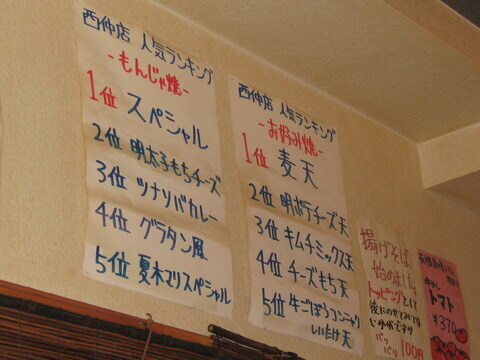 西仲店 人気ランキング
-もんじゃ焼-
1位 スペシャル
2位 明太子もちチーズ
3位 ツナソバカレー
4位 グラタン風
5位 夏木マリスペシャル
西仲店 人気ランキング
-お好み焼-
1位 麦天
2位 明ポテチーズ天
3位 キムチミックス天
4位 チーズもち天
5位 牛ごぼうコンニャク
しいたけ天
揚げそば
始めました
トッピングとして
パリ
パリ 100円
冷やし
トマト
¥370